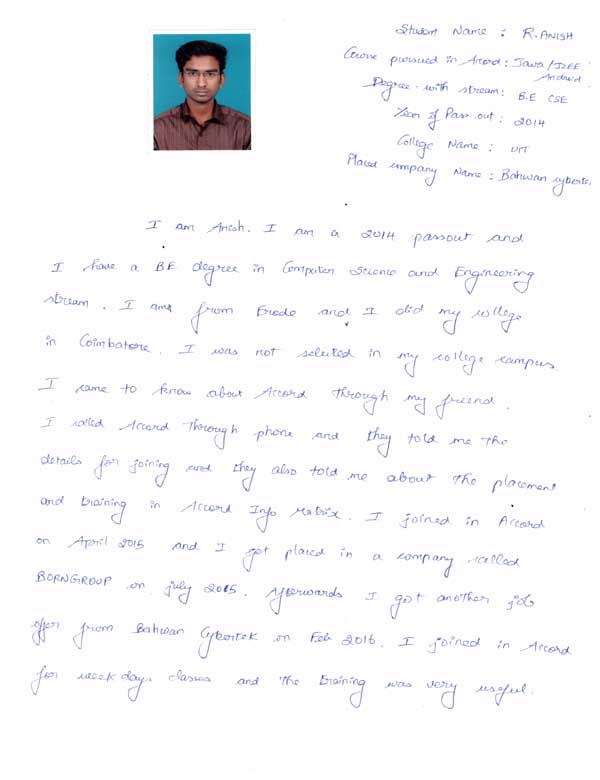 Student Name : R. ANISH
Course pursued in Accord : Java/J2EE,
Android
Degree with stream : B.E CSE
Year of Pass out : 2014
College Name : UIT
Placed company Name : Bahwan cybertek
I am Anish. I am a 2014 passout and
I have a BE degree in Computer Science and Engineering
stream. I am from Erode and I did my college
in Coimbatore. I was not selected in my college campus.
I came to know about Accord through my friend.
I called Accord through phone and they told me the
details for joining and they also told me about the placement
and training in Accord Info Matrix. I joined in Accord
on April 2015 and I got placed in a company called
BORNGROUP on july 2015. Afterwards I got another job
offer from Bahwan Cybertek on Feb 2016. I joined in Accord
for week days classes and the training was very useful.